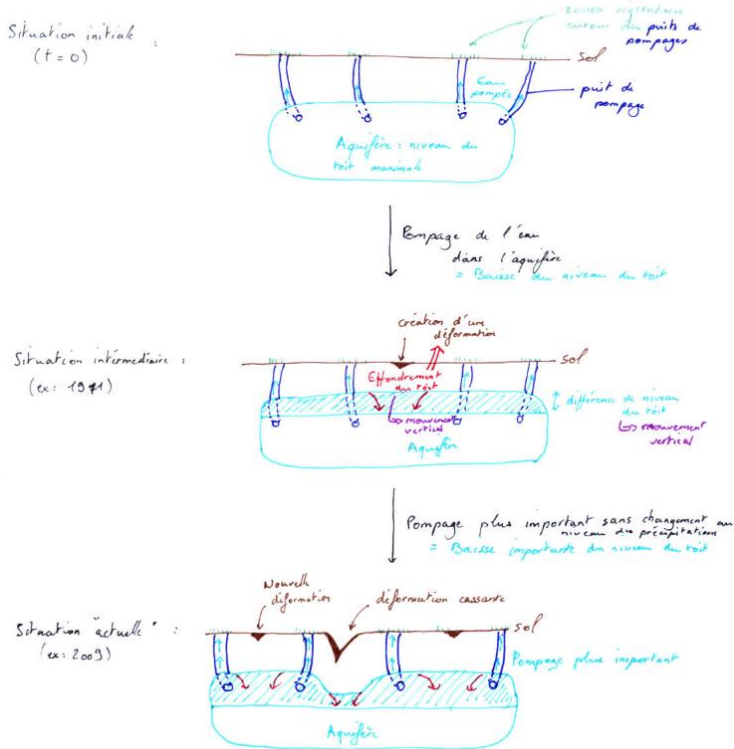 Situation initiale :
(t = 0)
zones végétation
autour du puits de
pompages
sol
Eau
pompée
puit de
pompage
Aquifère : niveau du
toit maximale
Pompage de l'eau
dans l'aquifère
= Baisse du niveau du toit
Situation intermédiaire :
(ex : 1971)
création d'une
déformation
sol
Effondrement
du toit
↳ mouvement
vertical
Aquifère
différence de niveau
du toit
↳ mouvement
vertical
Pompage plus important sans changement au
niveau des précipitations
= Baisse importante du niveau du toit
Situation "actuelle" :
(ex : 2009)
Nouvelle
déformation
déformation cassante
sol
Pompage plus important
Aquifère